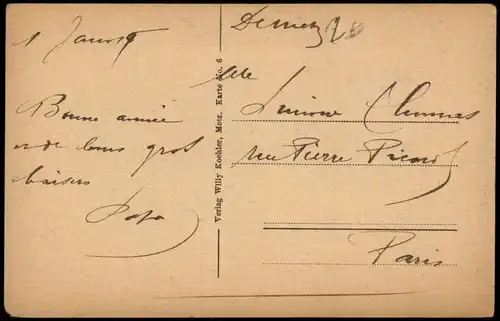 1 Janv 19
Bonne année
et de bons gros
baisers
Papa
Verlag Willy Koehler, Metz. Karte No. 6
Mlle
Simone Thomas
rue Pierre Picard
Paris